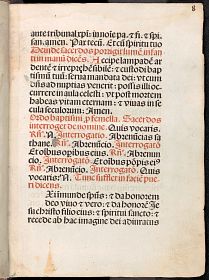 8
ante tribunal xpi: innoc̄te pa. ⁊ fi. ⁊ spi.
san. amen. Par tecū. Et cū spiritu tuo
Deinde sacerdos porrigit lumē infan
tri in manū dicēs. Accipe lampadē ar
dentē ⁊ irreprehēsibilē: ⁊ custodi bap
tismū tuū: serua mandata dei: vt cum
dn̄s ad nuptias venerit: possis illi oc-
currere in aula celesti: vt post mortem
habeas vitam eternam: ⁊ viuas in se
cula seculorum. Amen.
Ordo baptismi p̄ femella. Sacerdos
interroget de nomine. Quis vocaris.
Rn̄. N. Interrogatio. Abrenūcias sa
thane. Rn̄. Abrenūcio. Interrogatō
Et oībus opibus eius. Rn̄. Abrenun
cio. Interrogatō. Et oībus pōpis ei⁹
Rn̄. Abrenūcio. Interrogatō. Quis
vocaris. N. Tunc sufflet in faciē pue
ri dicens.
Exi immunde spūs: ⁊ da honorem
deo viuo ⁊ vero: ⁊ da honorē Je
su christo filio eius: ⁊ spiritui sancto: ⁊
recede ab hac imagine dei adiuratus